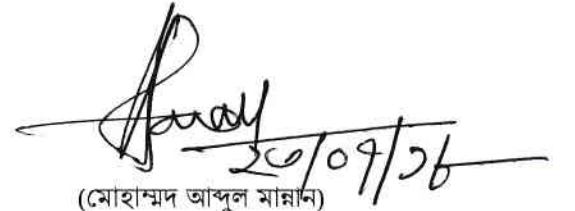 ২৩/০৭/১৮
(মোহাম্মদ আব্দুল মান্নান)